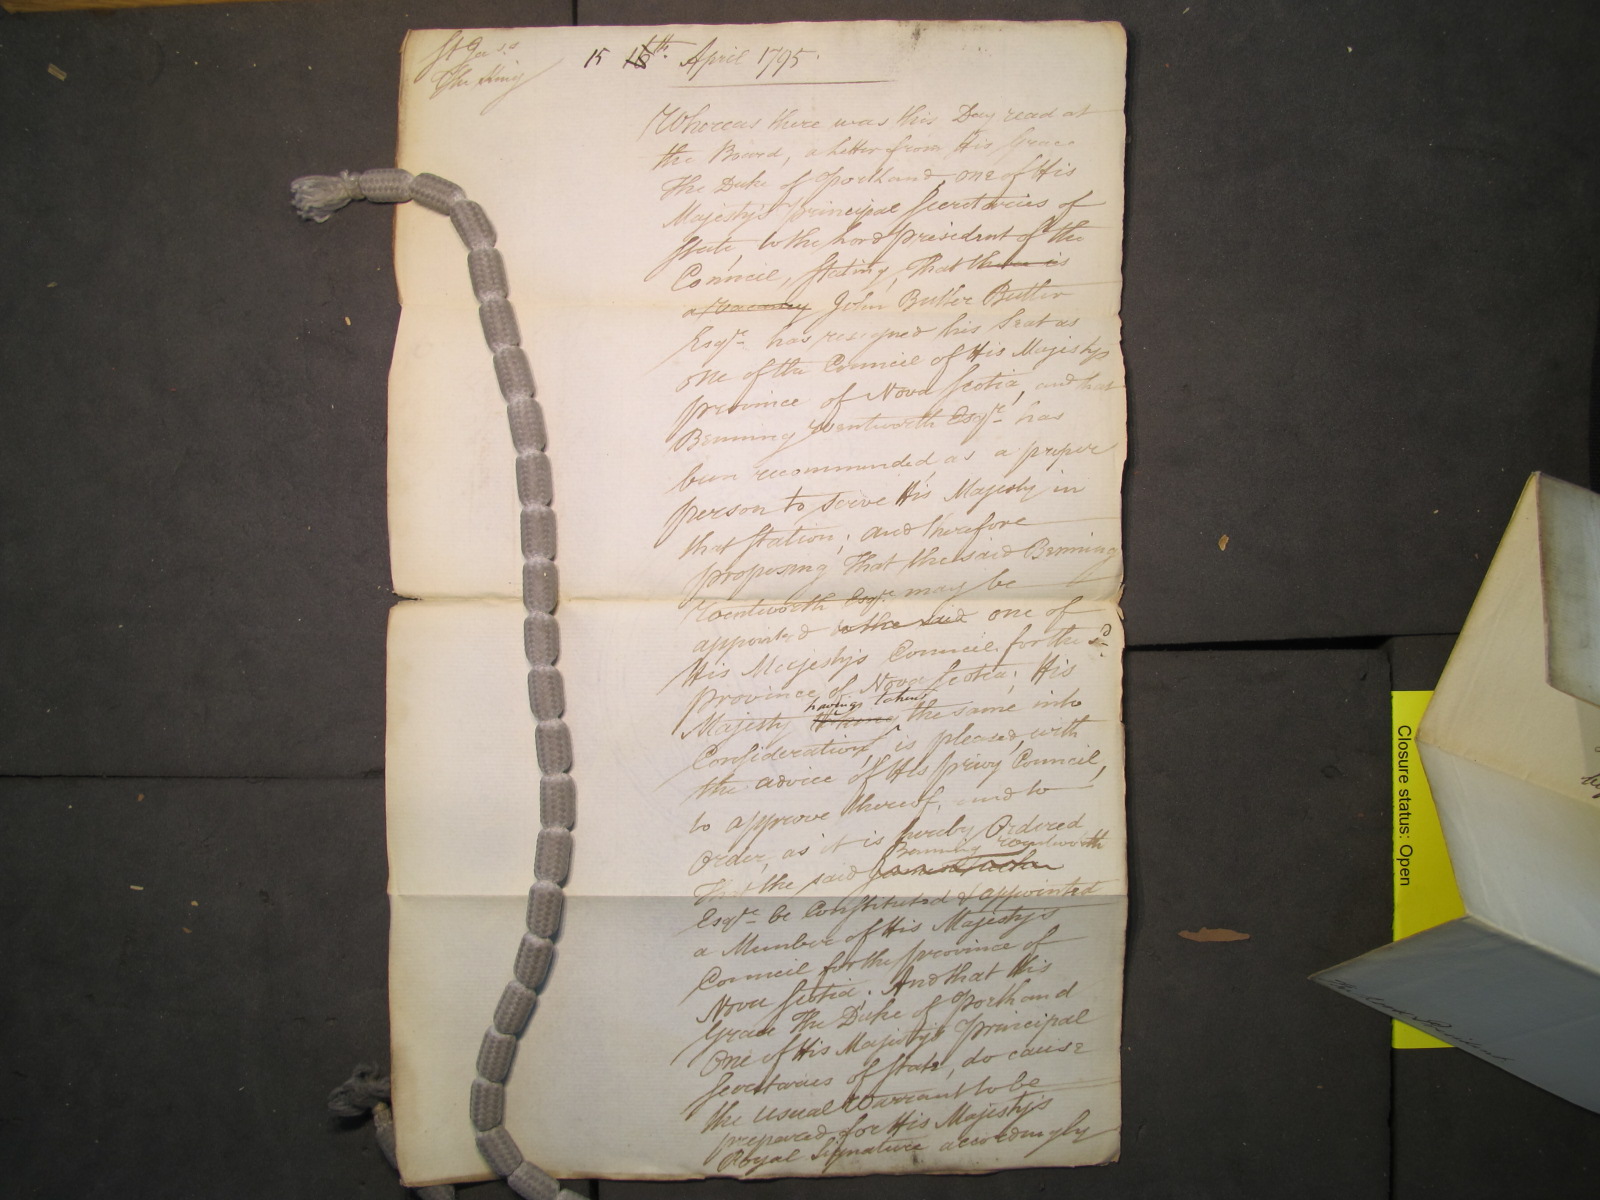 St Ja.s's
The King
15 16th. April 1795.
Whereas there was this Day read at
the Board, a Letter from His Grace
The Duke of Portland, one of His
Majesty's Principal Secretaries of
State, to the Lord President of the
Council, stating, That there is
a Vacancy John Butler Butler
Esqre. has resigned his Seat as
one of the Council of His Majestys
Province of Nova Scotia, and that
Benning Wentworth Esqre. has
been recommended as a proper
person to serve His Majesty in
that Station; and therefore
proposing That the said Benning
Wentworth Esqre. may be
appointed to the said one of
His Majesty's Council for the sd.
Province of Nova Scotia; His
having taken
Majesty the same into
Consideration, is pleased, with
the advice of His Privy Council,
to approve thereof, and to
Order, as it is hereby Ordered
Benning Wentworth
That the said
Esqre. be Constituted & appointed
a Member of His Majesty's
Council for the Province of
Nova Scotia. And that His
Grace The Duke of Portland
One of His Majesty's Principal
Secretaries of State, do cause
the usual Warrant to be
prepared for His Majesty's
Royal Signature accordingly
Closure status: Open
The Lord President